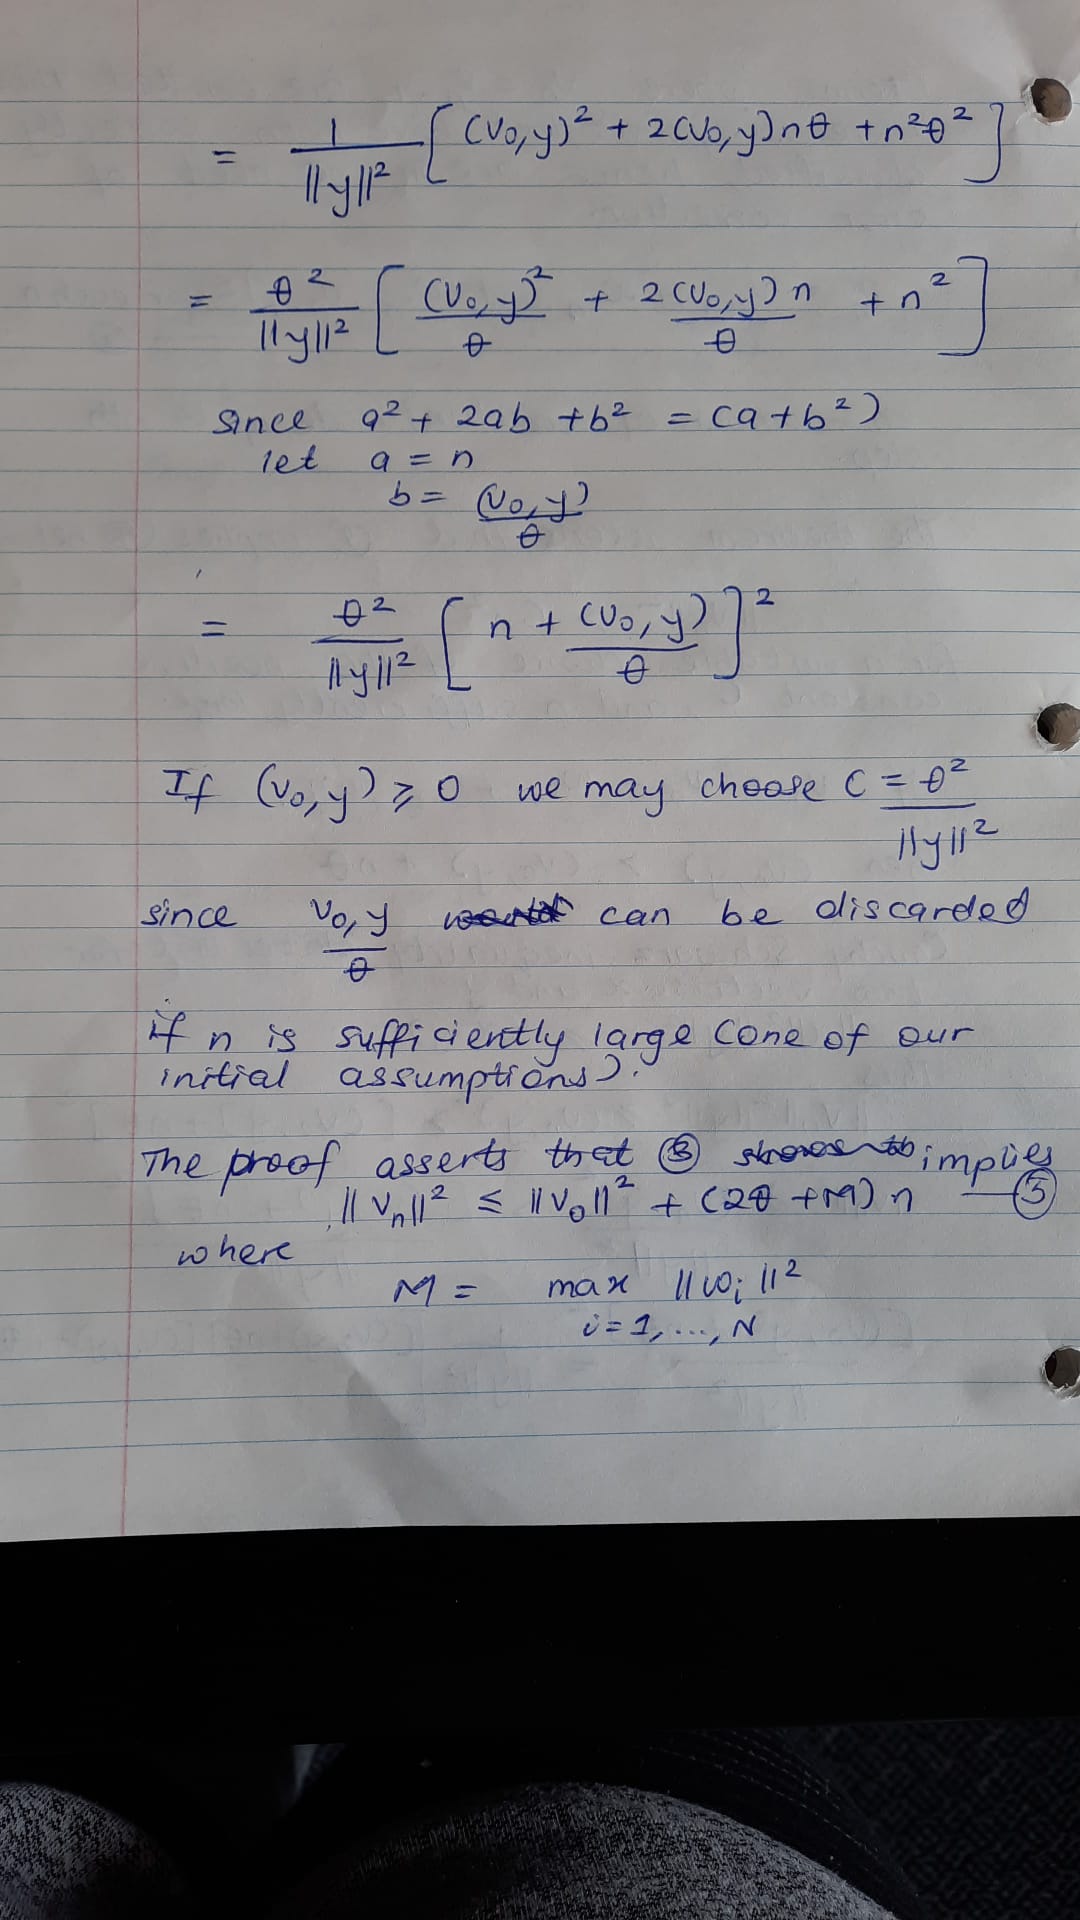 = 1/||y||² [ (v₀,y)² + 2(v₀,y)nθ + n²θ² ]
= θ²/||y||² [ (v₀,y)²/θ + 2(v₀,y)n/θ + n² ]
since a² + 2ab + b² = (a+b²)
let a = n
b = (v₀,y)/θ
= θ²/||y||² [ n + (v₀,y)/θ ]²
If (v₀,y) ⩾ 0 we may choose C = θ²/||y||²
since v₀,y/θ can be discarded
if n is sufficiently large (one of our
initial assumptions).
The proof asserts that ③ implies
||vₙ||² ≤ ||v₀||² + (2θ + M) n — ⑤
where
M = max ||wᵢ||²
i = 1, ..., N